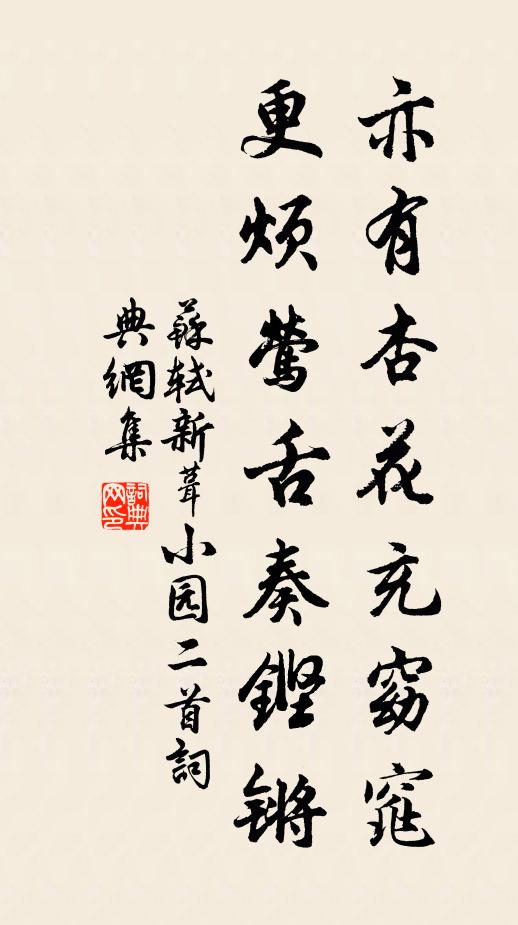 亦有杏花充窈窕
更烦莺舌奏铿锵
蘇軾新葺小园二首詞
典網集
詞典网印